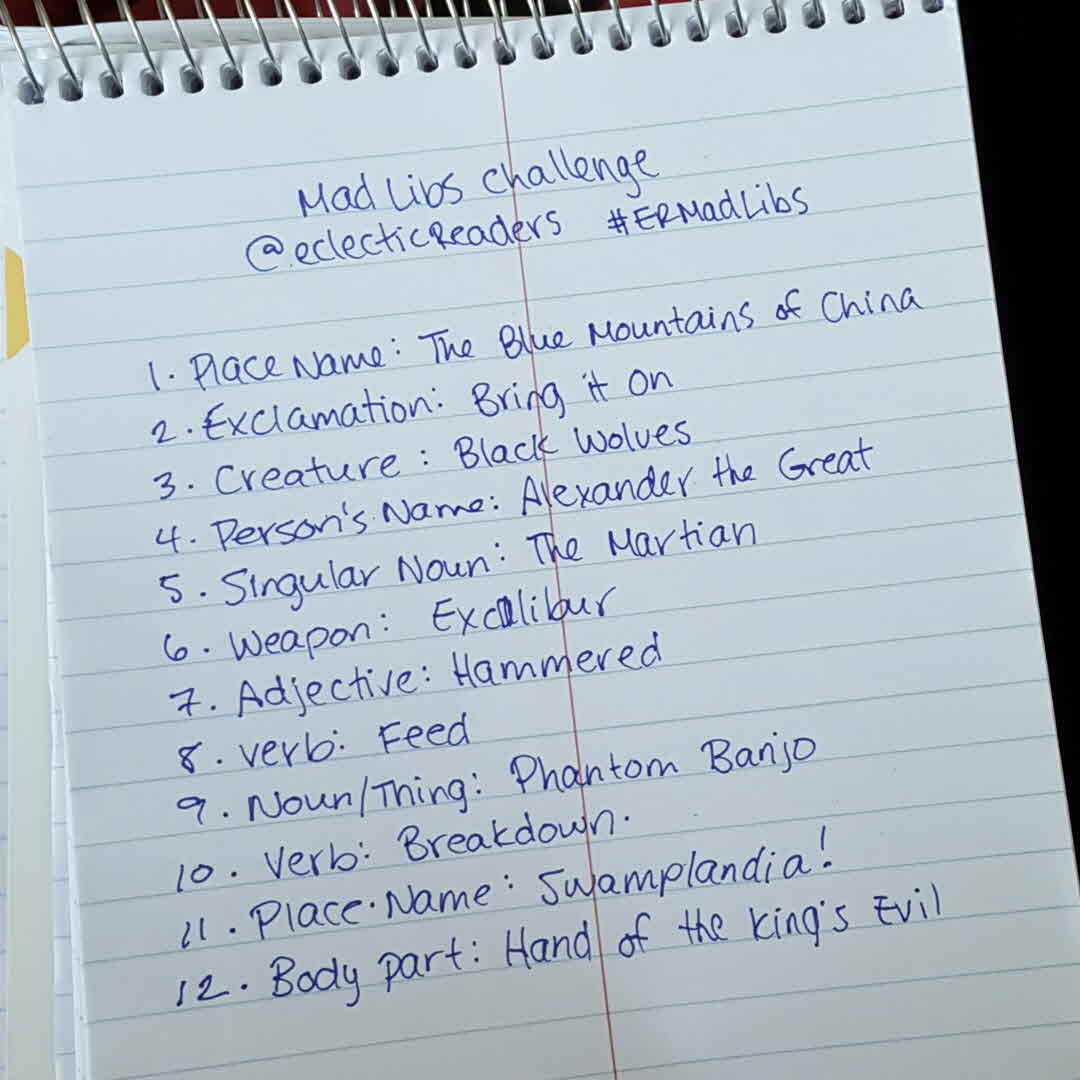 Mad Libs Challenge
@eclecticReaders #ERMadLibs
1. Place Name: The Blue Mountains of China
2. Exclamation: Bring it on
3. Creature: Black Wolves
4. Person's Name: Alexander the Great
5. Singular Noun: The Martian
6. Weapon: Excalibur
7. Adjective: Hammered
8. Verb: Feed
9. Noun/Thing: Phantom Banjo
10. Verb: Breakdown.
11. Place Name: Swamplandia!
12. Body part: Hand of the King's Evil